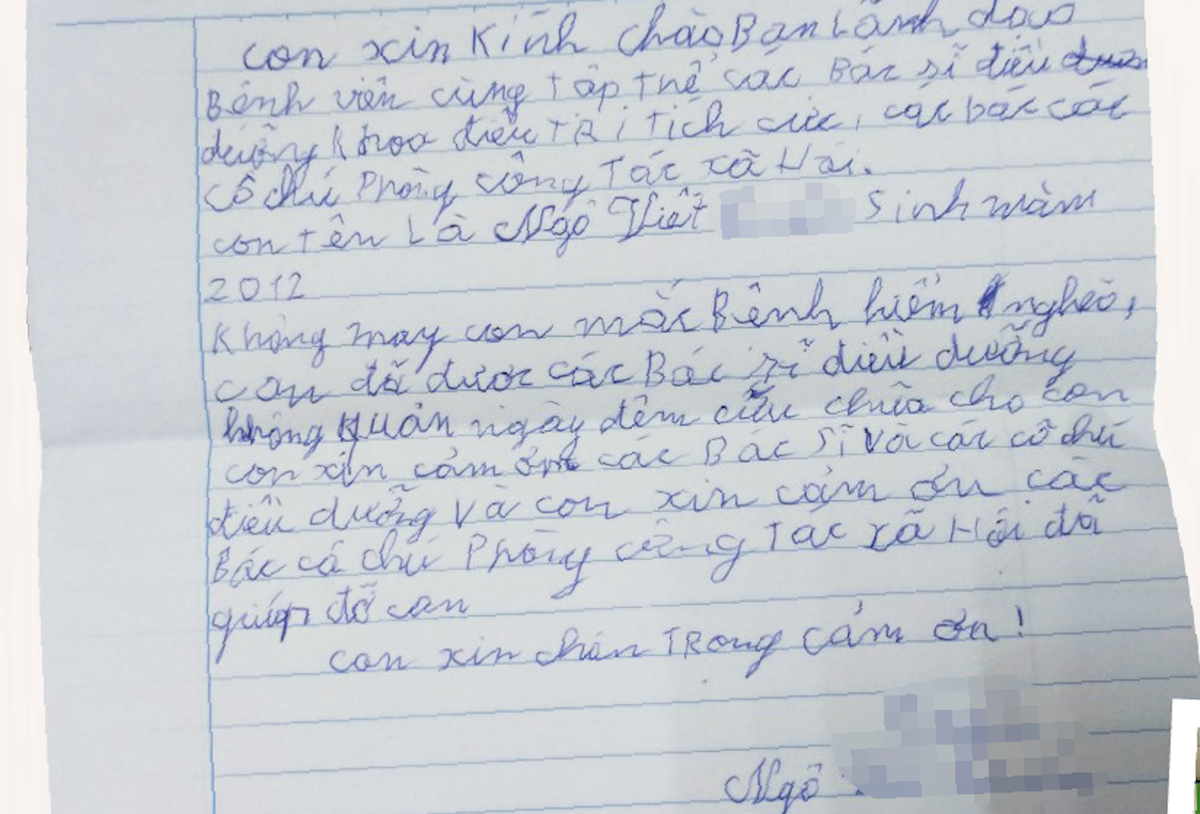 con xin Kính chào Ban Lãnh đạo
Bệnh viện cùng Tập Thể các Bác sĩ điều
dưỡng Khoa điều TRị Tích cực, các bác các
cô chú Phòng công Tác xã Hội.
con tên Là Ngô Viết Sinh măm
2012
Không may con mắc Bệnh hiểm nghèo,
con đã được các Bác sĩ điều dưỡng
không quản ngày đêm cứu chữa cho con
con xin cảm ơn các Bác sĩ và các cô chú
điều dưỡng và con xin cảm ơn các
Bác cô chú Phòng công Tác xã Hội đã
giúp đỡ con
con xin chân TRọng cảm ơn!
Ngô